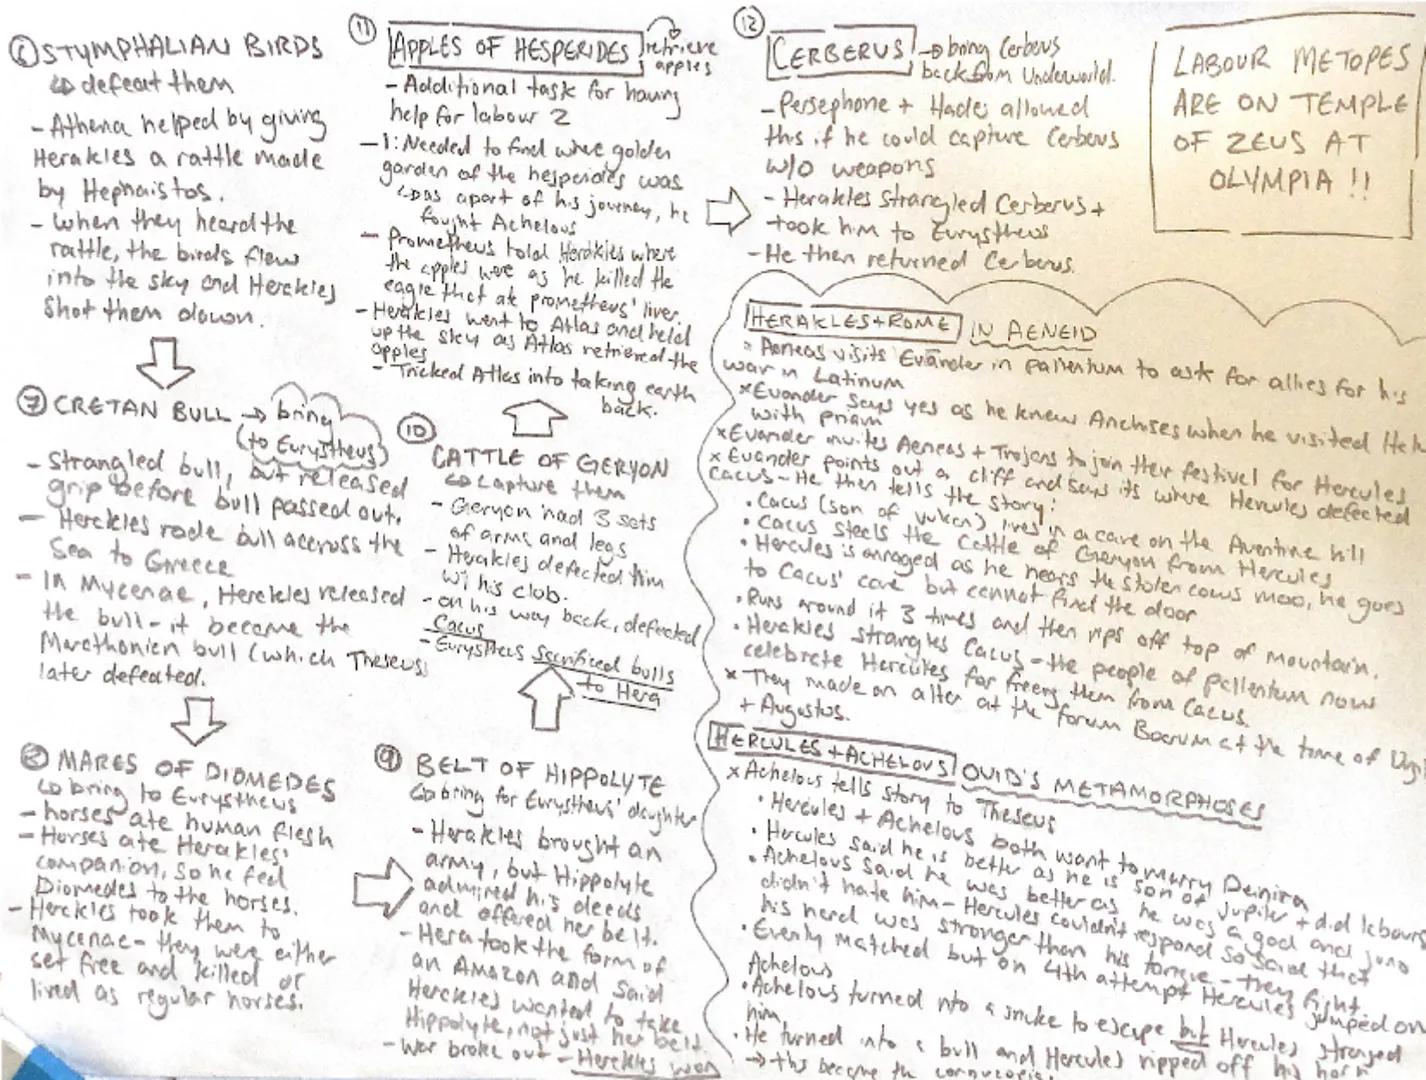 ⑥ STYMPHALIAN BIRDS
↳ defeat them
- Athena helped by giving
Herakles a rattle made
by Hephaistos.
- when they heard the
rattle, the birds flew
into the sky and Herakles
shot them down.
⑦ CRETAN BULL → bring
to Eurystheus
- Strangled bull, but released
grip before bull passed out.
- Herakles rode bull accross the
Sea to Greece
- In Mycenae, Herakles released
the bull - it became the
Marathonian bull (which Theseus
later defeated.
⑧ MARES OF DIOMEDES
↳ bring to Eurystheus
- horses ate human flesh
- Horses ate Herakles'
companion, so he fed
Diomedes to the horses.
- Herakles took them to
Mycenae - they were either
set free and killed or
lived as regular horses.
⑨ BELT OF HIPPOLYTE
↳ bring for Eurystheus' daughter
- Herakles brought an
army, but Hippolyte
admired his deeds
and offered her belt.
- Hera took the form of
an Amazon and said
Herakles wanted to take
Hippolyte, not just her belt.
- War broke out - Herakles won
⑩ CATTLE OF GERYON
↳ capture them
- Geryon had 3 sets
of arms and legs
- Herakles defected him
w/ his club.
- on his way back, defected
Cacus
- Eurystheus sacrificed bulls
to Hera
⑪ APPLES OF HESPERIDES retrieve
apples
- Additional task for having
help for labour 2
- 1: Needed to find where golden
garden of the hesperides was
↳ as apart of his journey, he
fought Achelous
- Prometheus told Herakles where
the apples were as he killed the
eagle that ate prometheus' liver
- Herakles went to Atlas and held
up the sky as Atlas retrieved the
apples
- Tricked Atlas into taking earth
back.
⑫ CERBERUS → bring Cerbeus
back from Underworld.
- Persephone + Hades allowed
this if he could capture Cerbeus
w/o weapons
- Herakles strangled Cerberus +
took him to Eurystheus
- He then returned Cerberus.
LABOUR METOPES
ARE ON TEMPLE
OF ZEUS AT
OLYMPIA !!
HERAKLES + ROME IN AENEID
× Aeneas visits Evander in pallentum to ask for allies for his
war in Latinum
× Evander says yes as he knew Anchises when he visited
with priam
× Evander invites Aeneas + Trojans to join their festivel for Hercules
× Evander points out a cliff and says its where Hercules defected
Cacus - He then tells the story:
• Cacus (son of vulcan) lives in a cave on the Aventine hill
• Cacus steels the Cattle of Geryon from Hercules
• Hercules is enraged as he hears the stolen cows moo, he goes
to Cacus' cave but cannot find the door
• Runs around it 3 times and then rips off top of mountain.
• Herakles strangles Cacus - the people of pallentum now
celebrate Hercules for freeing them from Cacus.
× They made an alter at the forum Boarum at the time of Virgil
+ Augustus.
HERCULES + ACHELOUS OVID'S METAMORPHOSES
× Achelous tells story to Theseus
• Hercules + Achelous both want to marry Deinira
• Hercules said he is better as he is son of Jupiter + did labours
• Achelous said he was better as he was a god and Juno
didn't hate him - Hercules couldn't respond so said that
his hand was stronger than his tongue - they fight.
• Evenly matched but on 4th attempt Hercules jumped on
Achelous
• Achelous turned into a snake to escape but Hercules
him.
• He turned into a bull and Hercules ripped off his horn
→ this became the cornucopia.